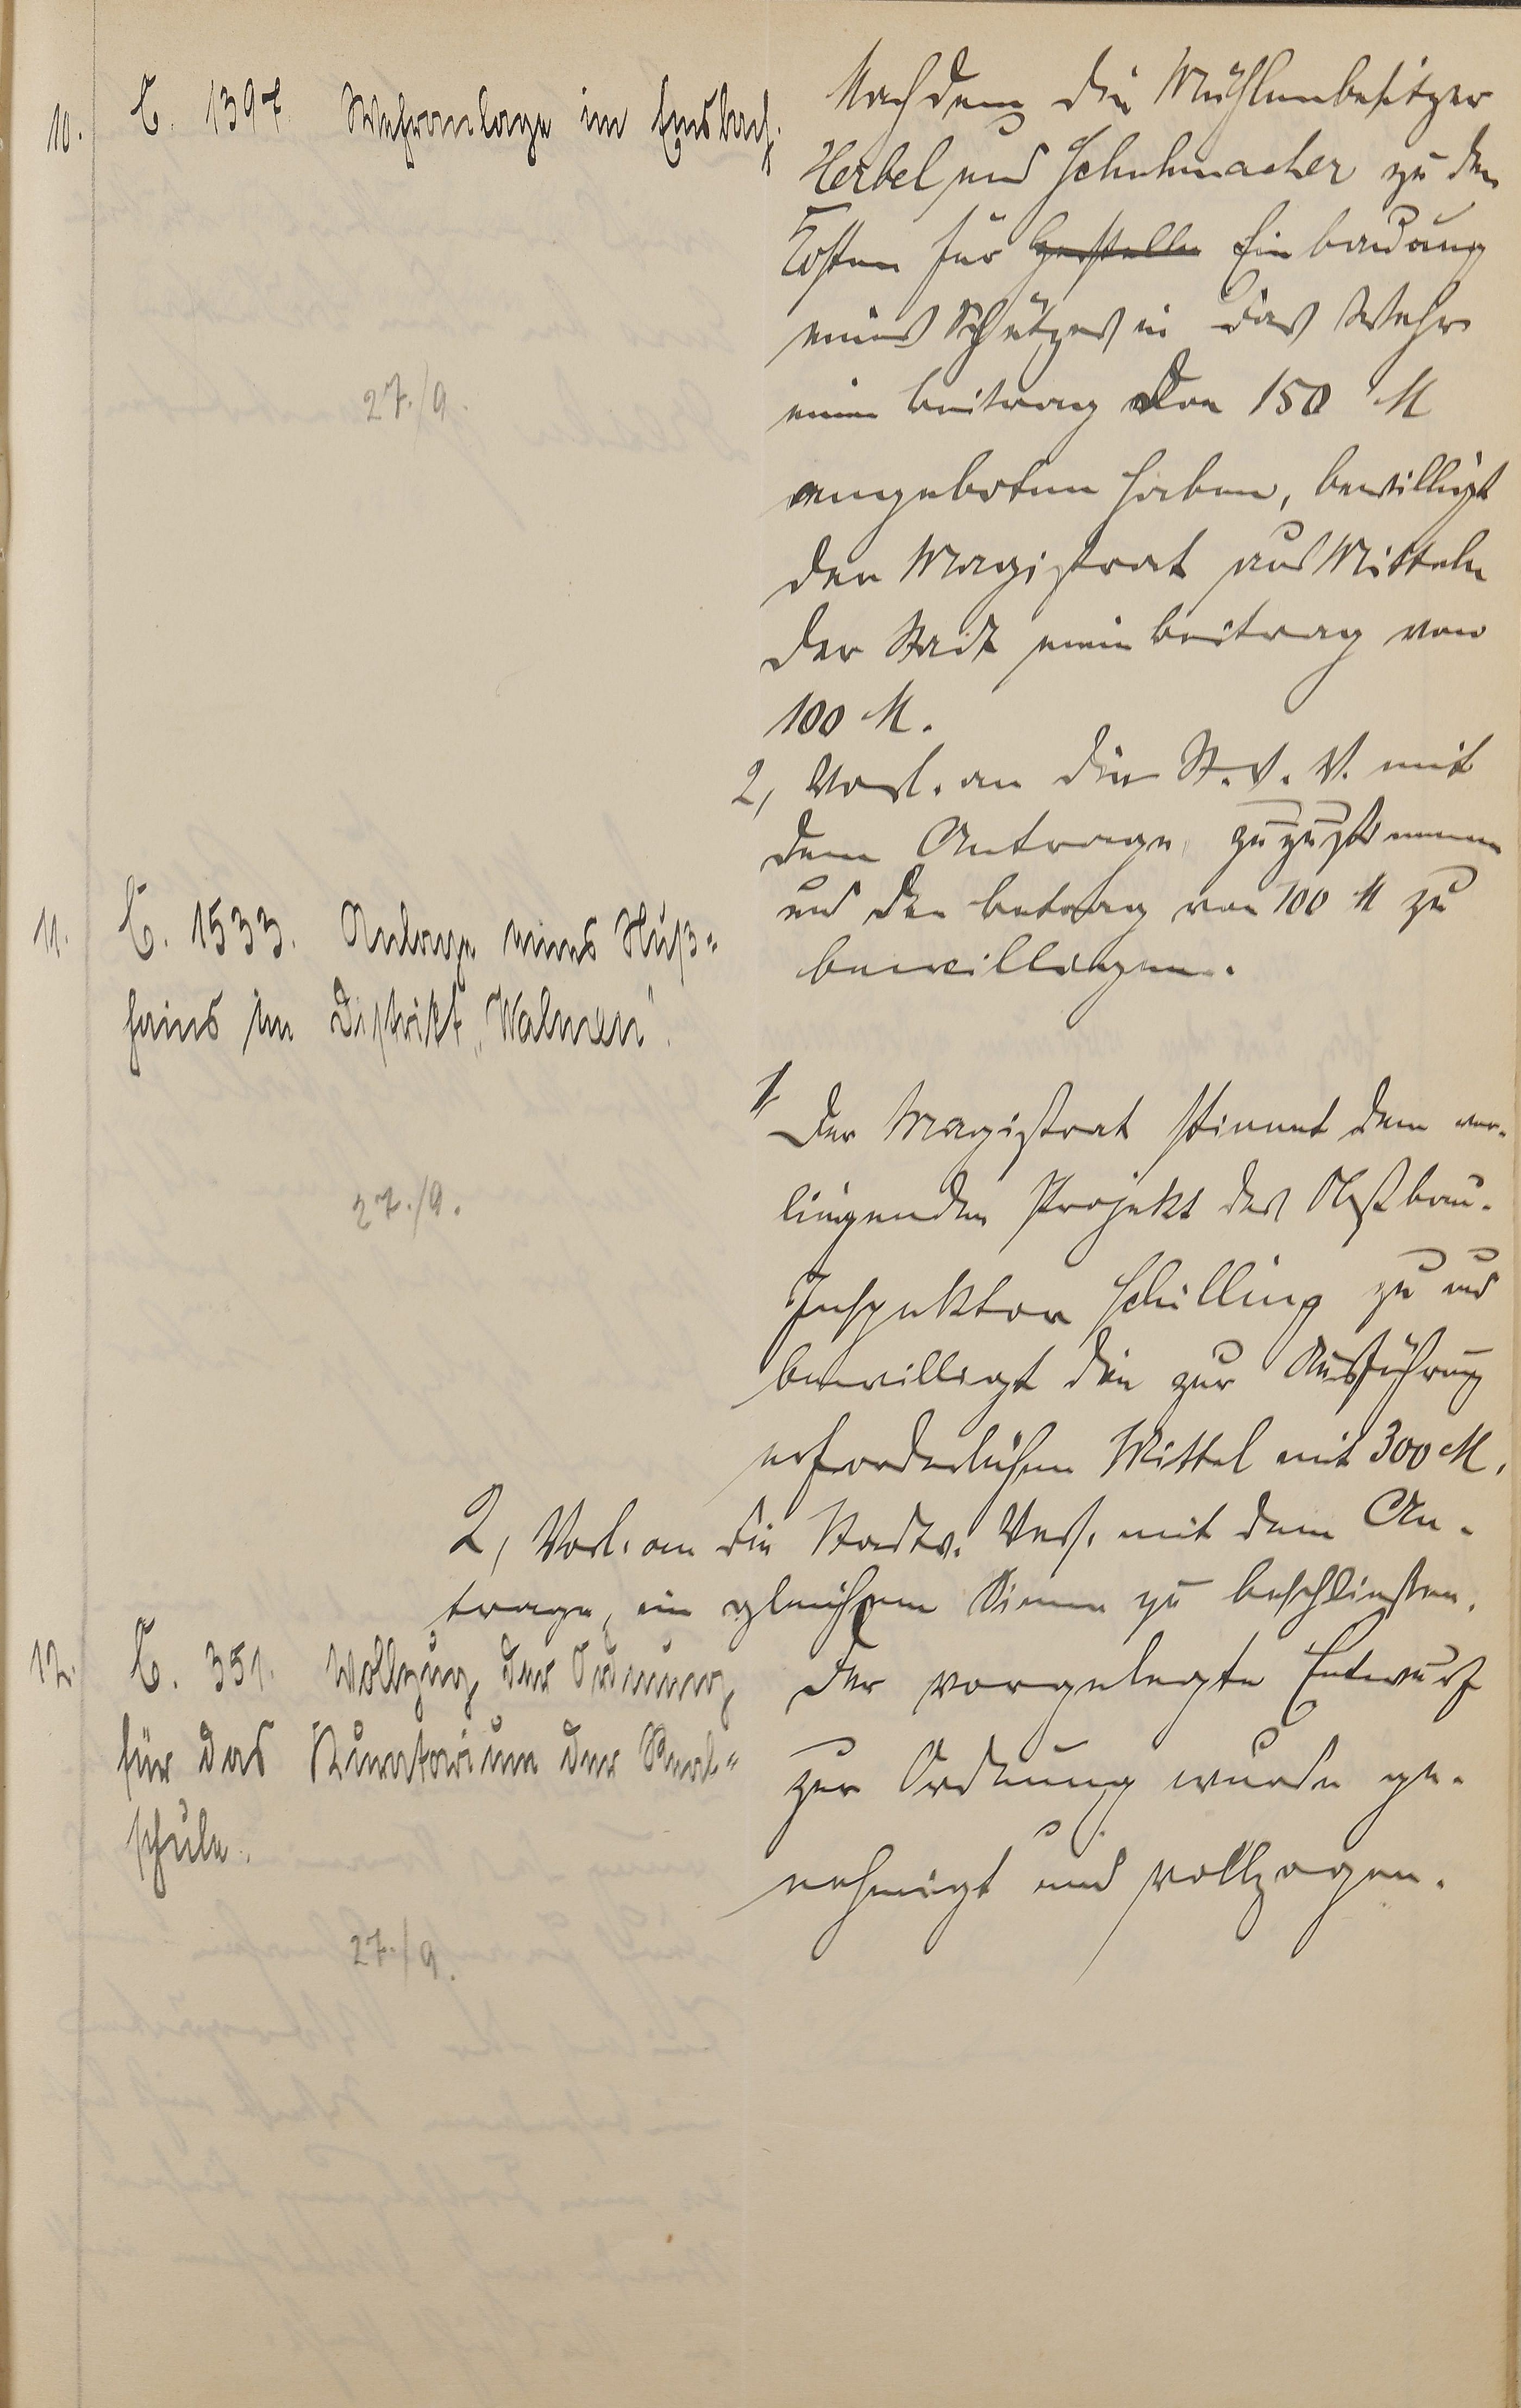 10. C. 1397. Wehranlage im Emsbach.
27./9.
Nachdem die Mühlenbesitzer
Herbel und Schuhmacher zu den
Kosten für Einbauung
eines Schützes in das Wehr
einen Beitrag von 150 M
angeboten haben, bewilligt
der Magistrat aus Mitteln
der Stadt einen Beitrag von
100 M.
2, Vorl. an die St. V. V. mit
dem Antrage, zuzustimmen
und den Betrag von 100 M zu
bewilligen.
11. C. 1533. Anlage eines Nuß-
hains im Distrikt „Walmen“.
27./9.
1, Der Magistrat stimmt dem vor-
liegenden Projekt des Obstbau-
Inspektor Schilling zu und
bewilligt die zur Ausführung
erforderlichen Mittel mit 300 M.
2, Vorl. an die Stadtv. Vers. mit dem An-
trage, in gleichem Sinne zu beschließen.
12. C. 351. Vollzug der Ordnung
für das Kuratorium der Real-
schule.
27./9.
Der vorgelegte Entwurf
zur Ordnung wurde ge-
nehmigt und vollzogen.